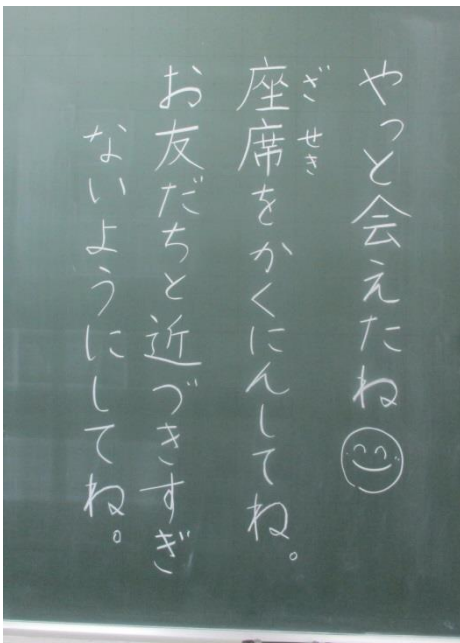 やっと会えたね
座席をかくにんしてね。
ざせき
お友だちと近づきすぎ
ないようにしてね。